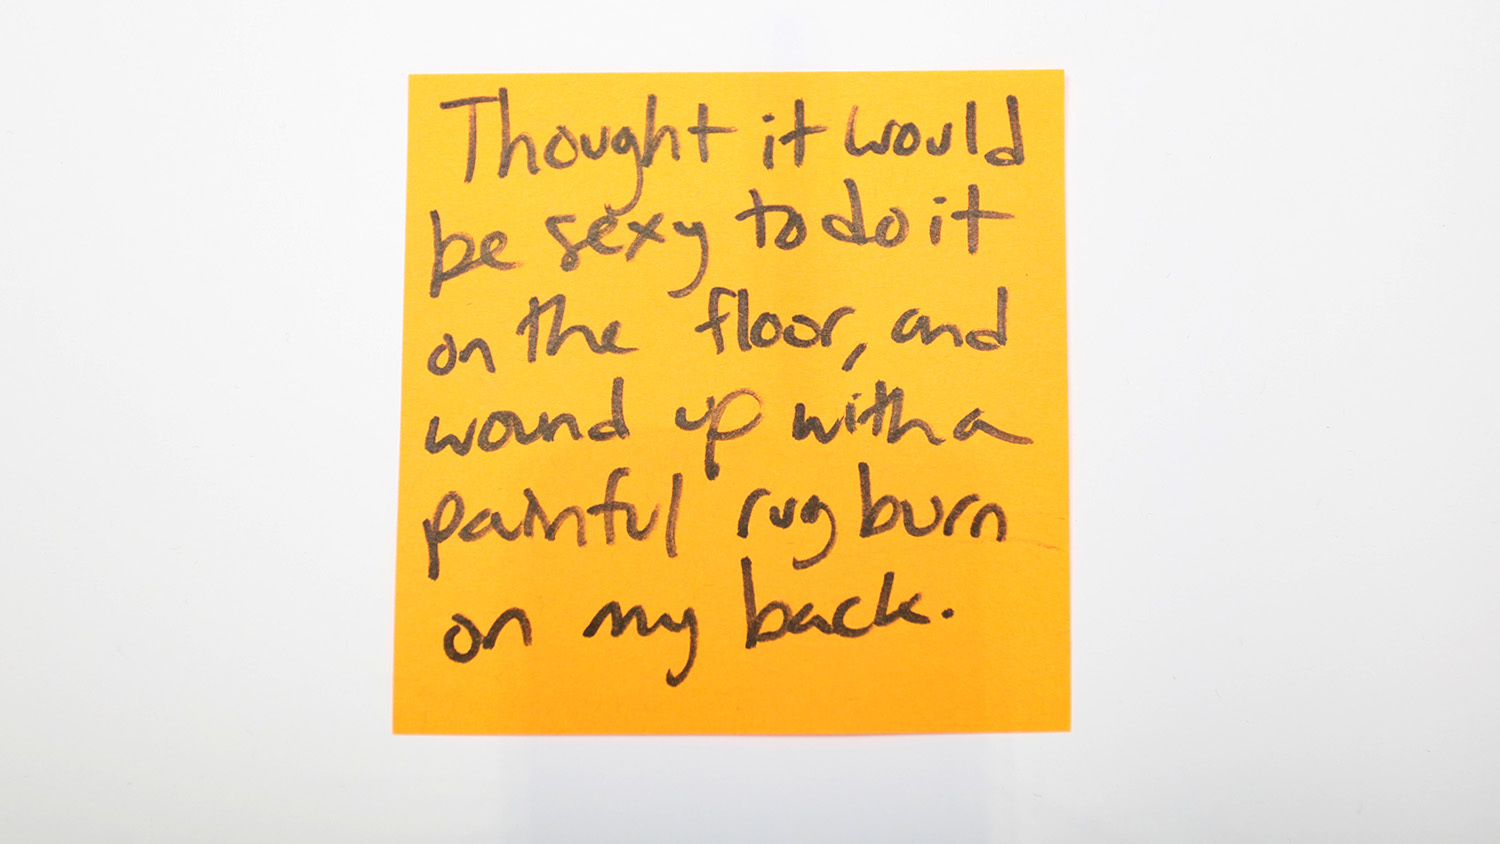 Thought it would
be sexy to do it
on the floor, and
wound up with a
painful rug burn
on my back.